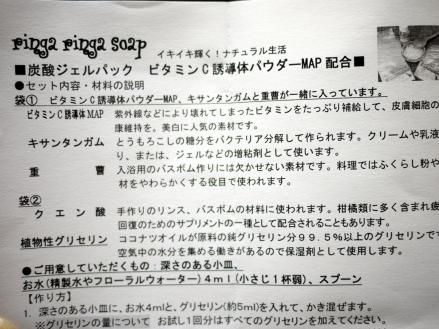 ringa ringa soap
イキイキ輝く!ナチュラル生活
■炭酸ジェルパック ビタミンC誘導体パウダーMAP配合■
●セット内容・材料の説明
袋① ビタミンC誘導体パウダーMAP、キサンタンガムと重曹が一緒に入っています。
ビタミンC誘導体MAP 紫外線などにより壊れてしまったビタミンをたっぷり補給して、皮膚細胞の
康維持を。美白に人気の素材です。
キサンタンガム とうもろこしの糖分をバクテリア分解して作られます。クリームや乳液
り、または、ジェルなどの増粘剤として使います。
重 曹 入浴用のバスボム作りには欠かせない素材です。料理ではふくらし粉や
材をやわらかくする役目で使われます。
袋②
クエン酸 手作りのリンス、バスボムの材料に使われます。柑橘類に多く含まれ疲
回復のためのサプリメントの一種として配合されることもあります。
植物性グリセリン ココナツオイルが原料の純グリセリン分99.5%以上のグリセリンで
空気中の水分を集める働きがあるので保湿剤として使用します。
●ご用意していただくもの:深さのある小皿、
お水(精製水やフローラルウォーター)4ml(小さじ1杯弱)、スプーン
【作り方】
1. 深さのある小皿に、お水4mlと、グリセリン(約5ml)を入れて、かき混ぜます。
※グリセリンの量について お試し1回分はすべてのグリセリンを加えてください。